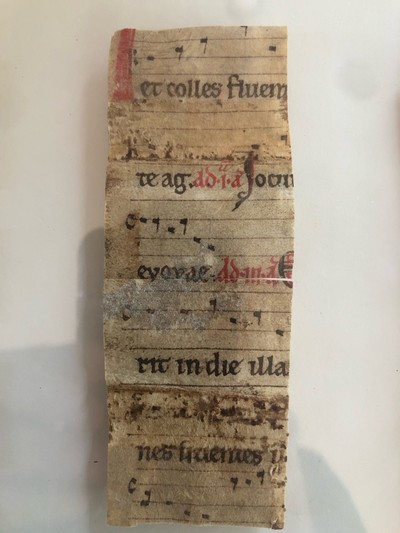 et colles fluen
te ag. ad .i. a Jocun
evovae. Ad .iii. a E
rit in die illa
nes sitientes